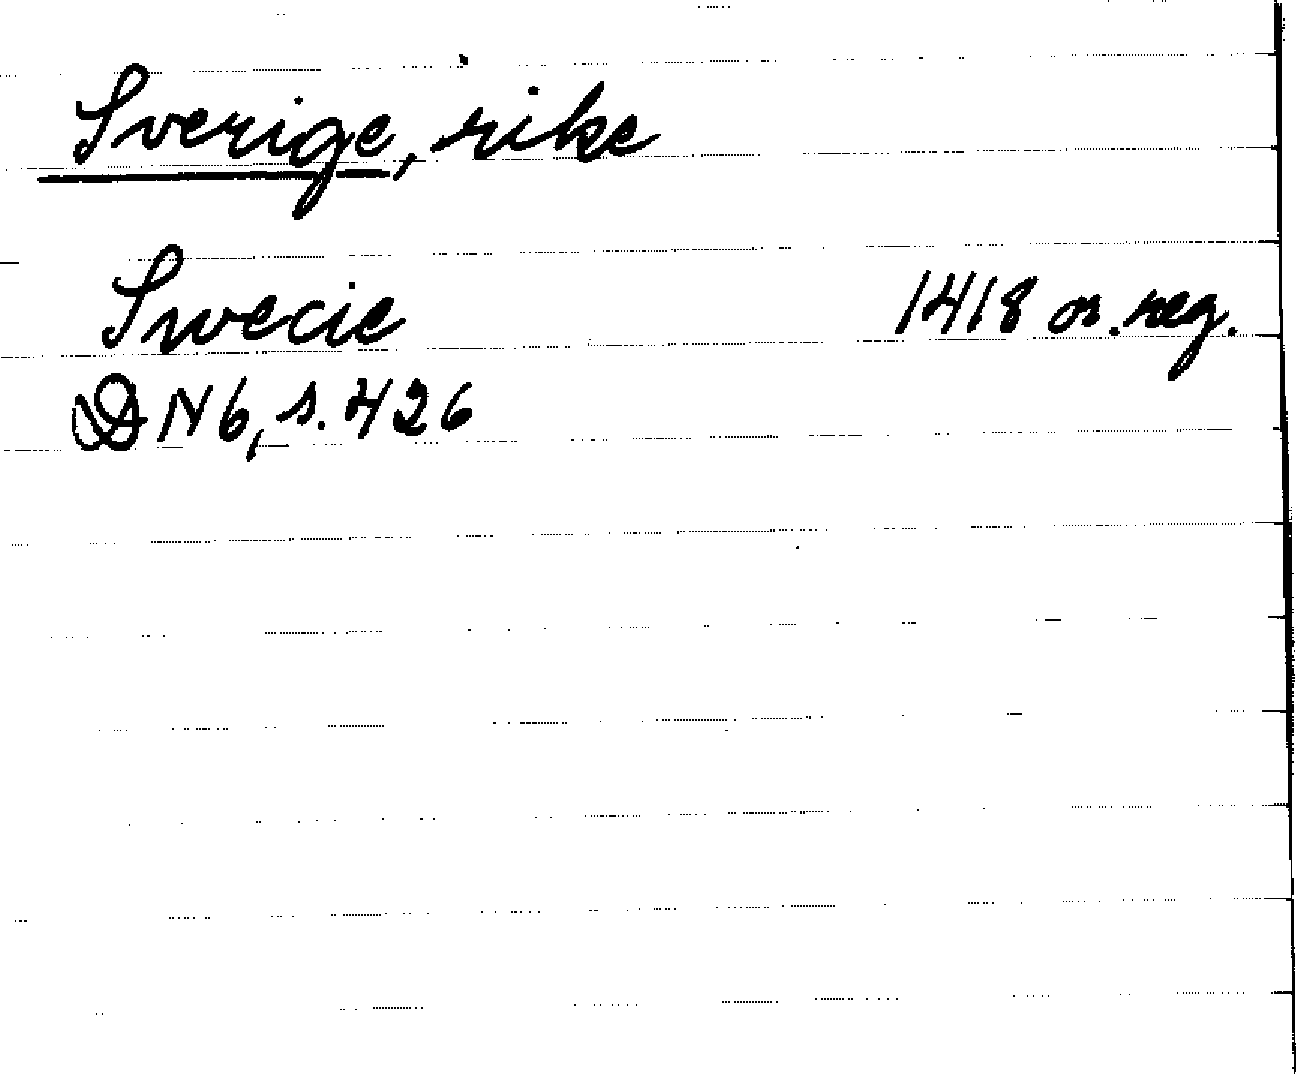 Sverige, rike
Swecie 1418 or. reg.
DN 6, s. 426